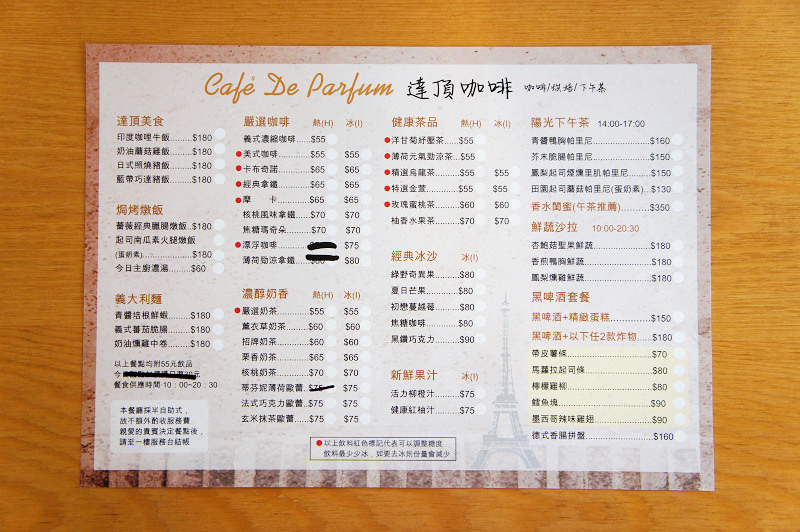 Café De Parfum 達頂咖啡 咖啡/烘焙/下午茶
達頂美食
印度咖哩牛飯........$180
奶油蘑菇雞飯........$180
日式照燒豬飯........$180
藍帶巧達豬飯........$180
焗烤燉飯
薔薇經典臘腸燉飯..$180
起司南瓜素火腿燉飯
(蛋奶素)..............$180
今日主廚濃湯........$60
義大利麵
青醬培根鮮蝦........$180
義式蕃茄脆腸........$180
奶油燻雞中卷........$180
以上餐點均附55元飲品
今
餐食供應時間 10：00~20：30
本餐廳採半自助式，
故不額外酌收服務費
親愛的貴賓決定餐點後，
請至一樓服務台結帳
嚴選咖啡 熱(H) 冰(I)
義式濃縮咖啡......$55
美式咖啡............$55 $55
卡布奇諾............$65 $65
經典拿鐵............$65 $65
摩 卡............$65 $65
核桃風味拿鐵......$70 $70
焦糖瑪奇朵.........$70 $70
漂浮咖啡............ $75
薄荷勁涼拿鐵...... $80
濃醇奶香 熱(H) 冰(I)
嚴選奶茶............$55 $55
薰衣草奶茶.........$60 $60
招牌奶茶............$60 $60
栗香奶茶............$65 $65
核桃奶茶............$70 $70
蒂芬妮薄荷歐蕾..$75 $75
法式巧克力歐蕾..$70 $70
玄米抹茶歐蕾......$75 $75
以上飲料紅色標記代表可以調整糖度
飲料最少少冰，如要去冰則份量會減少
健康茶品 熱(H) 冰(I)
洋甘菊紓壓茶......$55
薄荷元氣勁涼茶...$55
精選烏龍茶.........$55 $55
特選金萱............$55 $55
玫瑰蜜桃茶.........$60 $60
柚香水果茶.........$70 $70
經典冰沙 冰(I)
綠野奇異果.........$80
夏日芒果............$80
初戀蔓越莓.........$80
焦糖咖啡............$80
黑鑽巧克力.........$90
新鮮果汁 冰(I)
活力柳橙汁.........$75
健康紅柚汁.........$75
陽光下午茶 14:00-17:00
青醬鴨胸帕里尼..................$160
芥末脆腸帕里尼..................$150
鳳梨起司煙燻里肌帕里尼......$150
田園起司蘑菇帕里尼(蛋奶素)..$130
香水閨蜜(午茶推薦)............$350
鮮蔬沙拉 10:00-20:30
杏鮑菇聖果鮮蔬..................$180
香煎鴨胸鮮蔬.....................$180
鳳梨燻雞鮮蔬.....................$180
黑啤酒套餐
黑啤酒+精緻蛋糕...............$150
黑啤酒+以下任2款炸物......$180
帶皮薯條...........................$70
馬蘿拉起司條.....................$80
檸檬雞柳...........................$80
鱈魚塊..............................$90
墨西哥辣味雞翅..................$90
德式香腸拼盤.....................$160